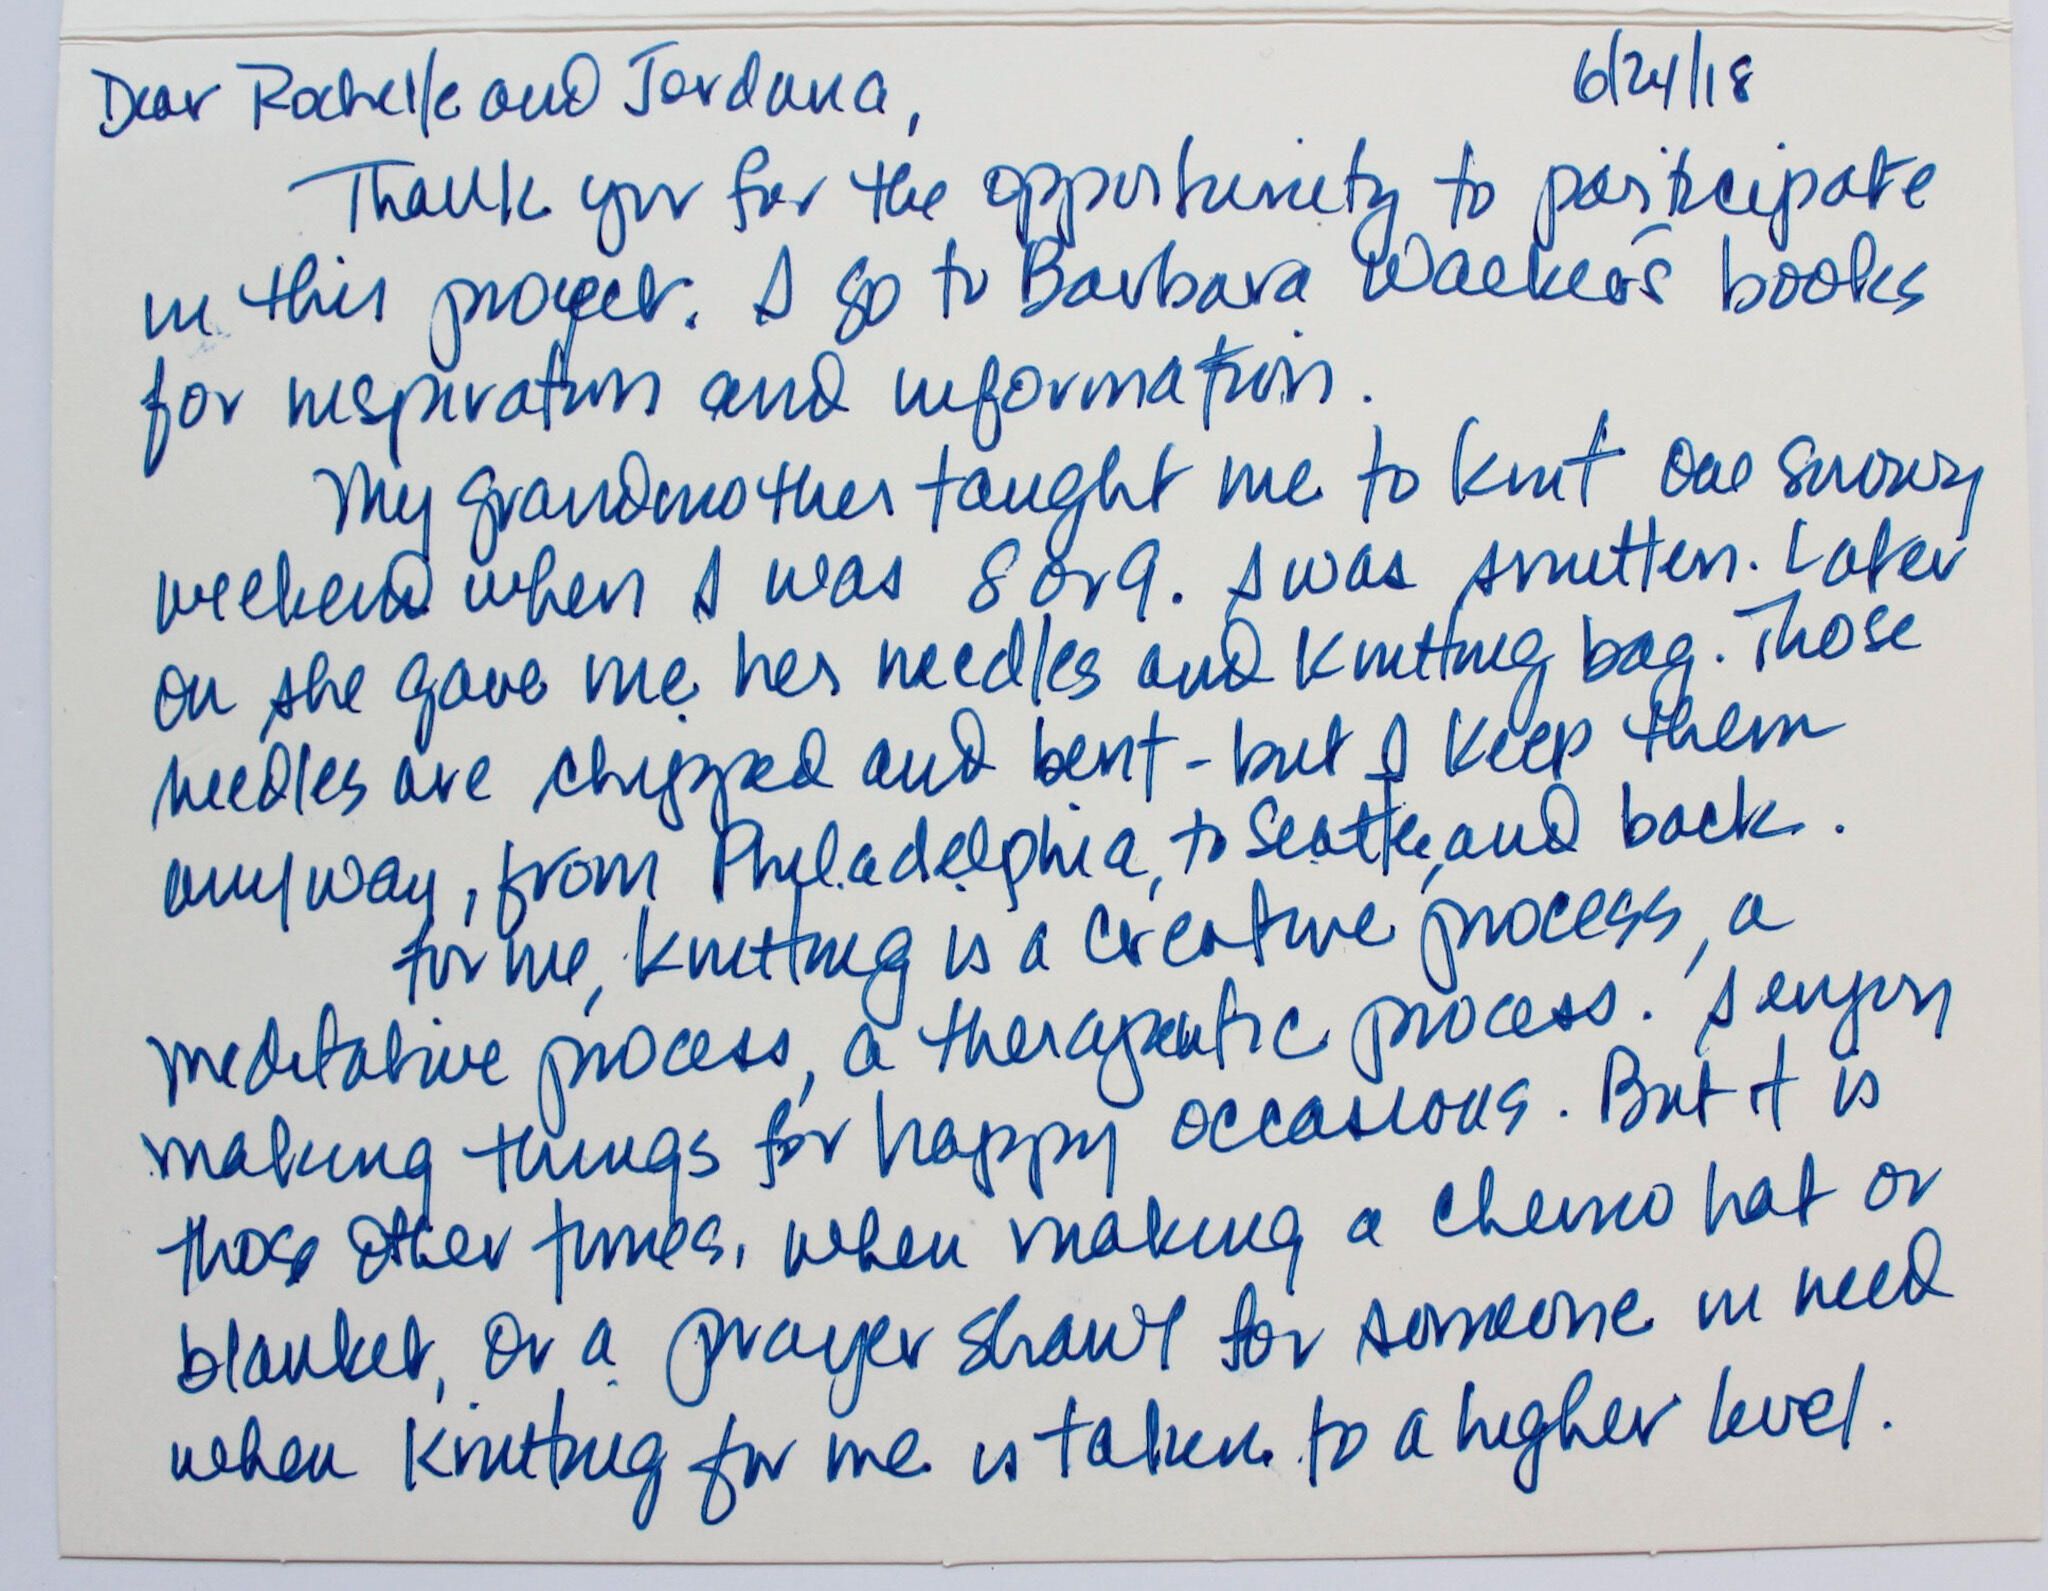 Dear Rochelle and Jordana, 6/24/18
Thank you for the opportunity to participate
in this project. I go to Barbara Walker's books
for inspiration and information.
My grandmother taught me to knit one snowy
weekend when I was 8 or 9. I was smitten. Later
on she gave me her needles and knitting bag. Those
needles are chipped and bent - but I keep them
anyway, from Philadelphia, to Seattle, and back.
For me, knitting is a creative process, a
meditative process, a therapeutic process. I enjoy
making things for happy occasions. But it is
those other times, when making a chemo hat or
blanket, or a prayer shawl for someone in need
when knitting for me is taken to a higher level.